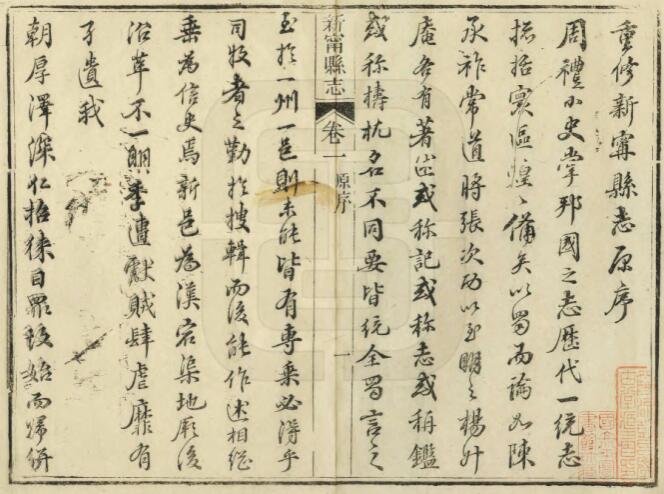 重修新甯縣志原序
周禮小史掌邦國之志歷代一統志
括寰區煌〻備矣以蜀而論如陳
承祚常道將張次功以至明之楊升
庵各有著出或称記或称志或称鑑
或称檮杌名不同要皆统全蜀言之
新甯縣志 卷一 原序 一
至於一州一邑則未能皆有專乗必得乎
司牧者之勤於搜輯而後能作述相繼
垂為信史焉新邑為漢宕渠地厥後
沿革不一明季遭獻賊肆虐靡有
孑遺我
朝厚澤深仁招徕自康始而歸併